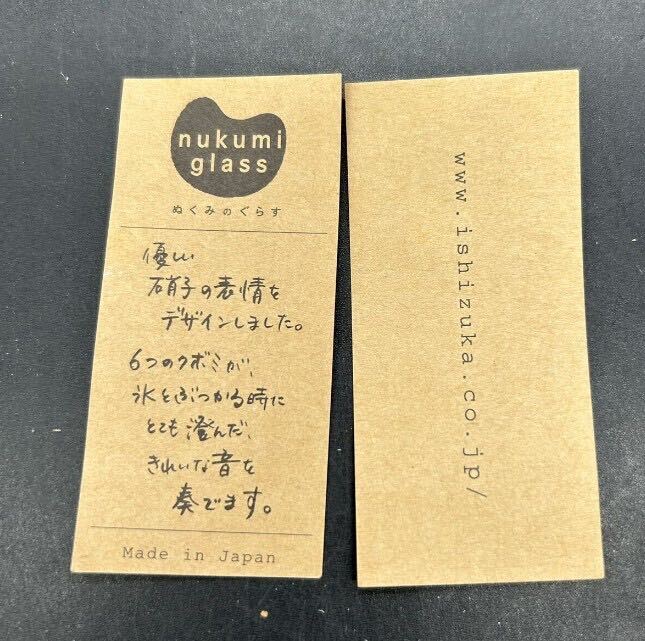 nukumi
glass
ぬくみのぐらす
優しい
硝子の表情を
デザインしました。
6つのクボミが、
氷とぶつかる時に
とても澄んだ、
きれいな音を
奏でます。
Made in Japan
www.ishizuka.co.jp/